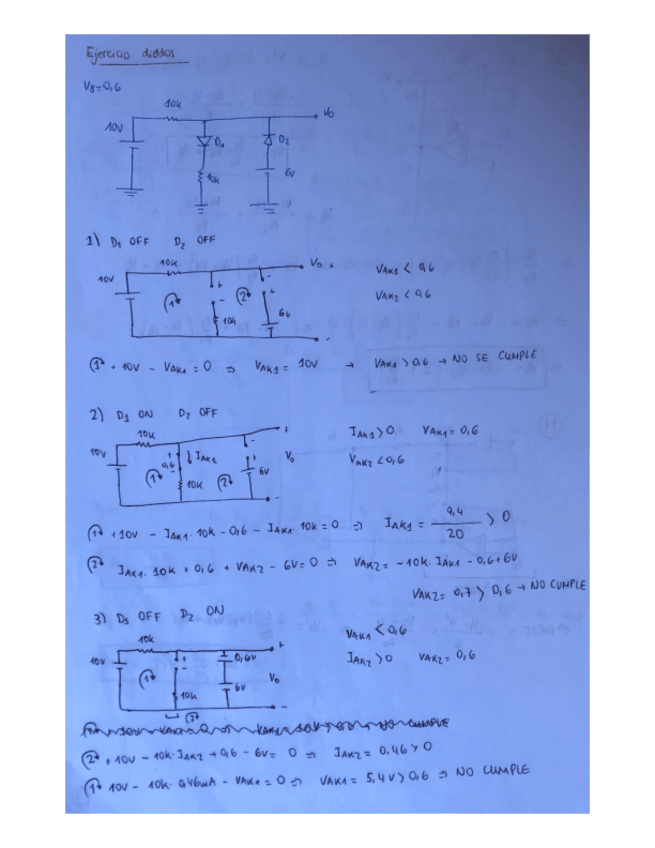 Ejercicio diodos
Vγ=0,6
10k
Vo
10V
D1
D2
10k
6V
1) D1 OFF D2 OFF
10k
Vo +
VAK1 < 0,6
10V
+
-
VAK2 < 0,6
1
2
-
+
6V
10k
-
1 + 10V - VAK1 = 0 ⇒ VAK1 = 10V → VAK1 > 0,6 → NO SE CUMPLE
2) D1 ON D2 OFF
10k
+
IAK1 > 0 VAK1 = 0,6
10V
+
0,6
-
IAK1
-
+
Vo
VAK2 < 0,6
1
10k
2
6V
-
1 + 10V - IAK1 · 10k - 0,6 - IAK1 · 10k = 0 ⇒ IAK1 = 9,4 / 20 > 0
2 IAK1 · 10k + 0,6 + VAK2 - 6V = 0 ⇒ VAK2 = -10k · IAK1 - 0,6 + 6V
VAK2 = 0,7 > 0,6 → NO CUMPLE
3) D1 OFF D2 ON
10k
+
VAK1 < 0,6
10V
+
-
0,6V
Vo
IAK2 > 0 VAK2 = 0,6
1
6V
10k
-
2
2 + 10V - 10k · IAK2 + 0,6 - 6V = 0 ⇒ IAK2 = 0,46 > 0
1 10V - 10k · 0,46mA - VAK1 = 0 ⇒ VAK1 = 5,4V > 0,6 ⇒ NO CUMPLE